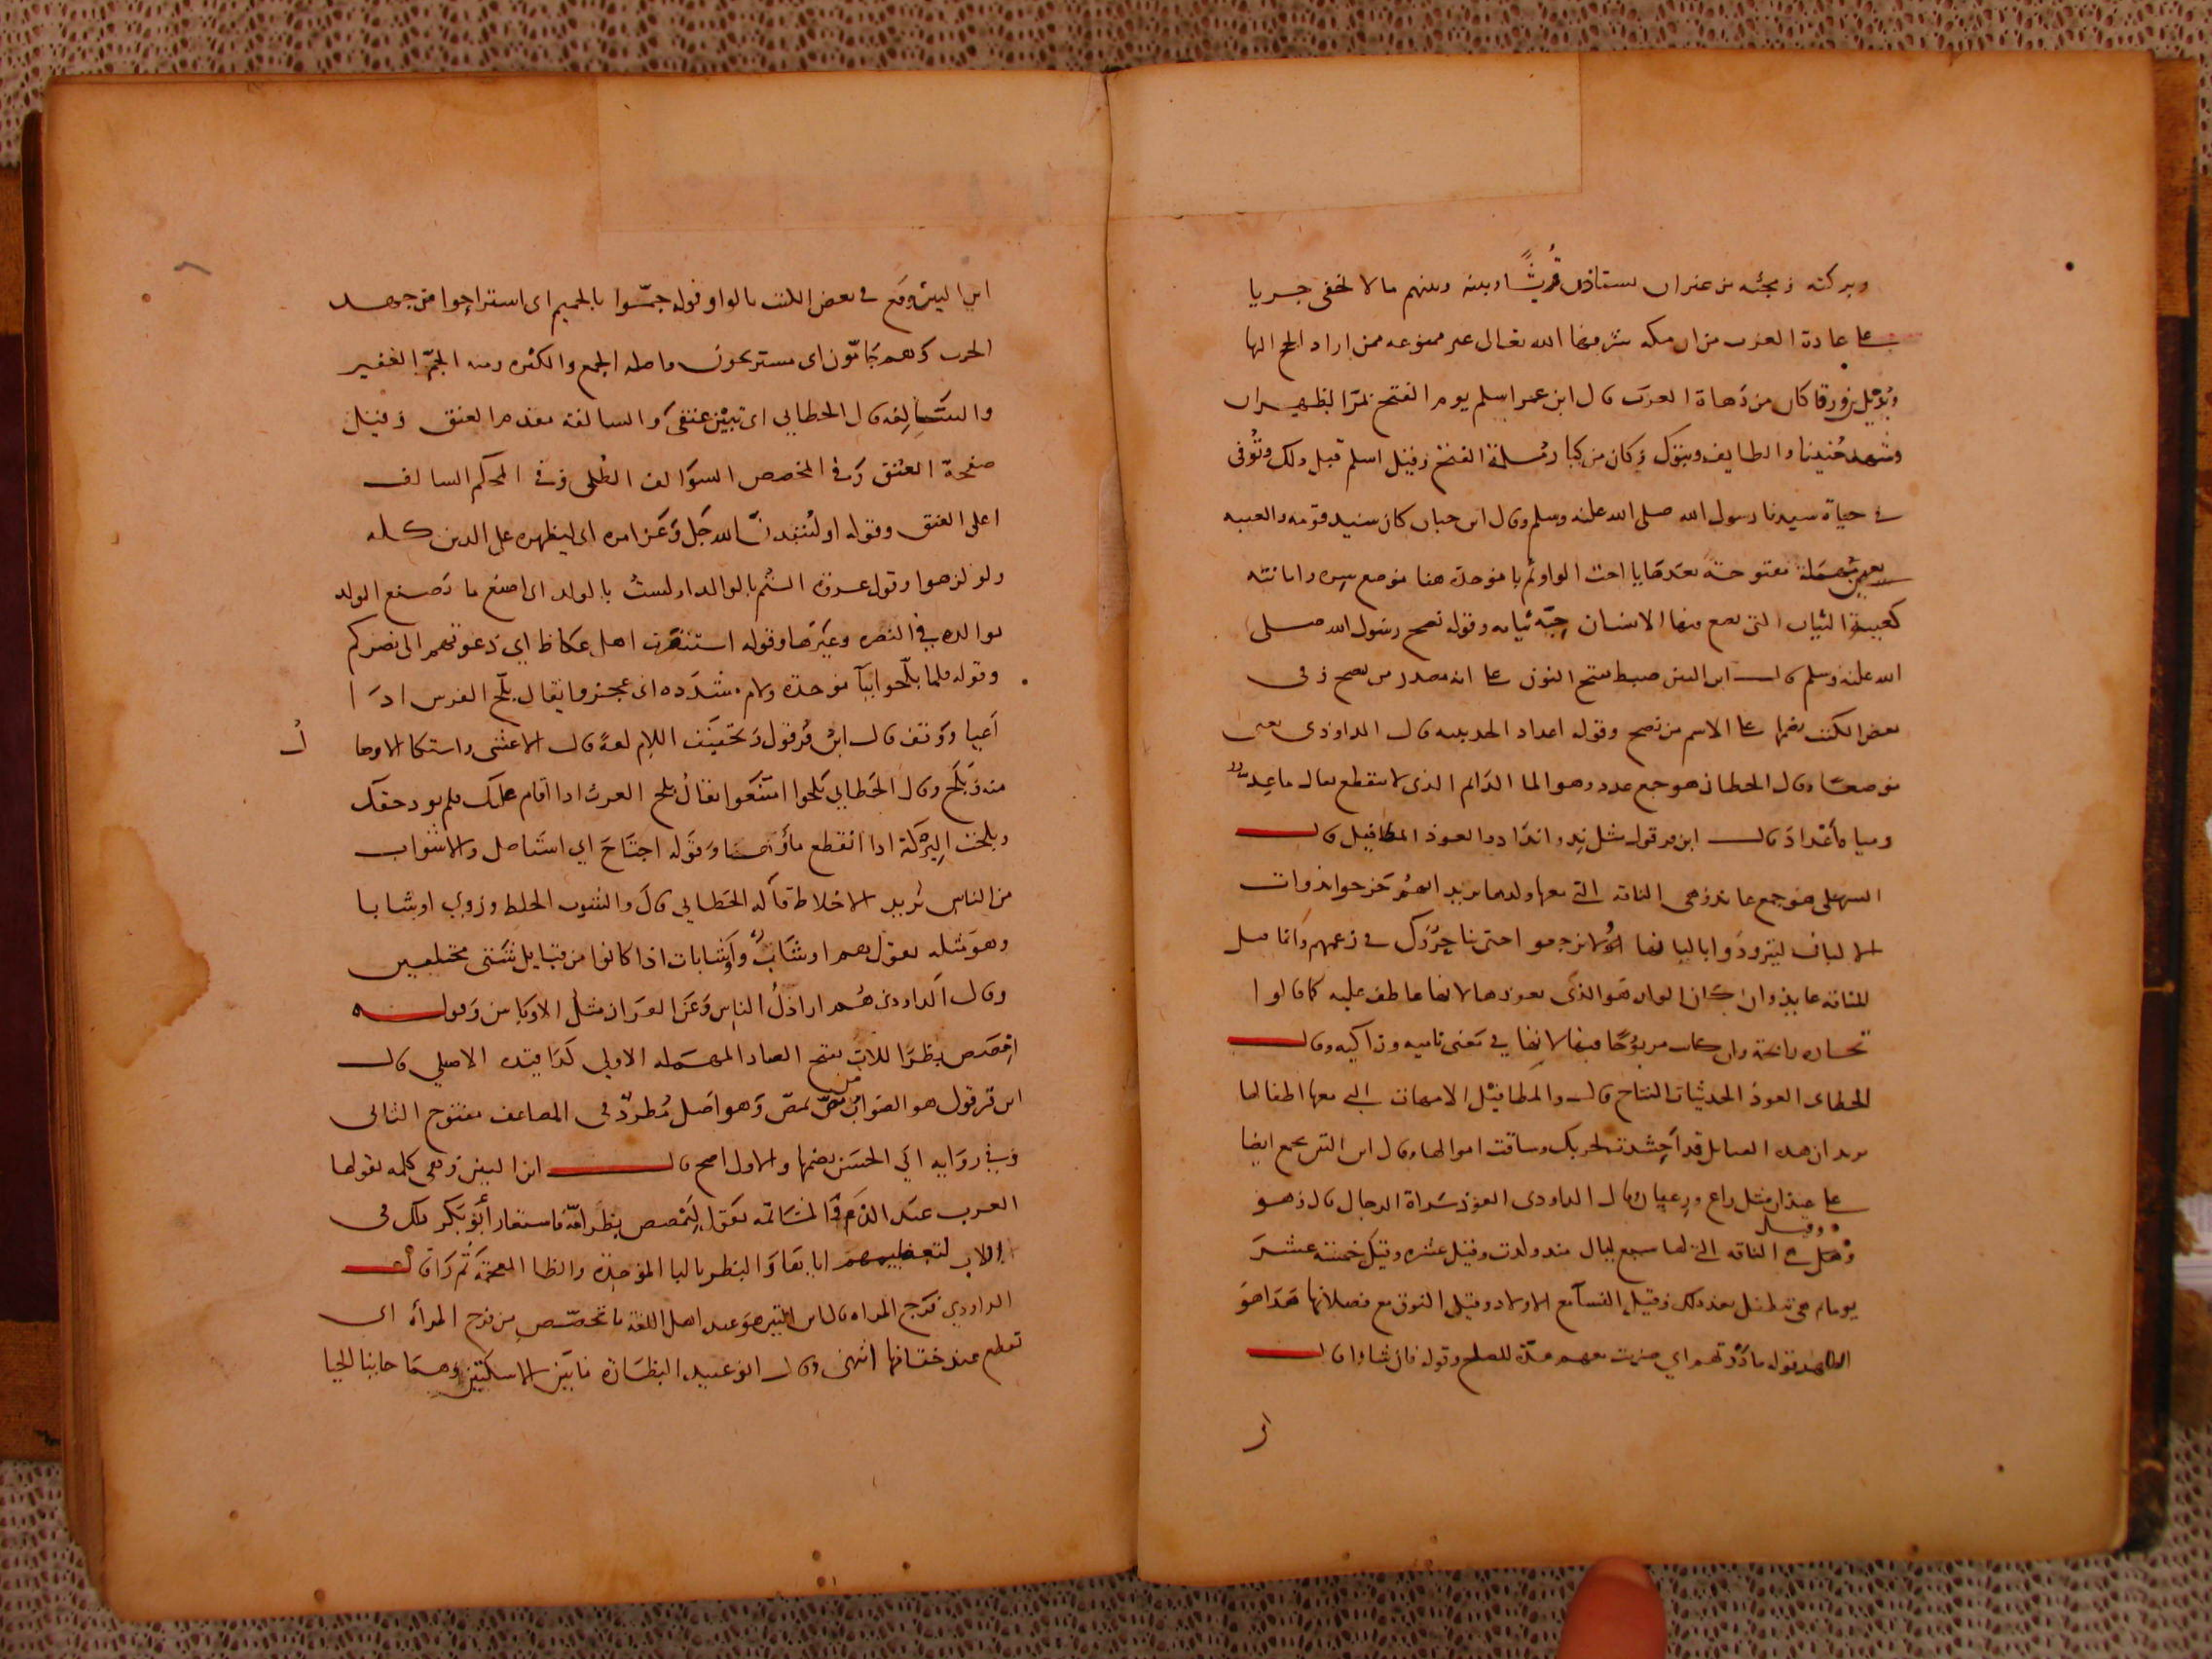 وبركته ومجئه من غير ان يستاذن قريشا وبينه وبينهم ما لا يخفى جريا
على عادة العرب من ان مكة شرفها الله تعالى غير ممنوعة ممن اراد الحج اليها
وبديل بن ورقا كان من دهاة العرب قال ابن عمر اسلم يوم الفتح بمر الظهران
وشهد حنينا والطايف وتبوك وكان من كبار مسلمة الفتح وقيل اسلم قبل ذلك وتوفى
في حياة سيدنا رسول الله صلى الله عليه وسلم وقال ابن حبان كان سيد قومه والعيبه
بعين مهملة مفتوحة بعدها يا اخت الواو ثم با موحدة هنا موضع سره وامانته
كعيبة الثياب التي يضع فيها الانسان ثيابه وقوله نصح رسول الله صلى
الله عليه وسلم قال ابن التين ضبط بفتح النون على انه مصدر من نصح وفى
بعض الكتب بضمها على الاسم من نصح وقوله اعداد الحديبيه قال الداوذى يعنى
موضعا وقال الخطابى هو جمع عدد وهو الما الدايم الذى لا ينقطع يقال ما عد
ومياه أعداد قال ابن قرقول مثل ند وانداد والعوذ المطافيل قال
السهيلى هو جمع عايذ وهى الناقه التى معها ولدها يريد انهم خرجوا بذوات
الالبان ليتزودوا بالبانها ولا يرجعوا حتى يناجزوك في زعمهم وانما قيل
للناقه عايذ وان كان الولد هو الذى يعوذ بها لانها عاطف عليه كما قالوا
تجاره رابحة وان كانت مربوحا فيها لانها في معنى ناميه وزاكيه وقال
الخطابى العوذ الحديثات النتاج قال والمطافيل الامهات التى معها اطفالها
يريد ان هذه القبايل قد احتشدت لحربك وساقت اموالها وقال ابن التين يجمع ايضا
على عيذان مثل راع ورعيان وقال الداودى العوذ سراة الرجال قال وهو
وقيل
وهل هى الناقه التى لها سبع ليال منذ ولدت وقيل عشره وقيل خمسة عشر
يوما ثم هى مطفل بعد ذلك وقيل النسآ مع الاولاد وقيل النوق مع فصلانها هذا هو
الظاهر وقوله ماددتهم اي ضربت معهم مدة للصلح وقوله فان شاوا قال
ا
ابن التين وقع في بعض الكتب بالواو وقوله جمّوا بالجيم اى استراحوا من جهد
الحرب وهم جامّون اى مستريحون واصله الجمع والكثره ومنه الجمّ الغفير
والسَّالِفه قال الخطابي اى تبين عنقى والسالفه مقدم العنق وقيل
صفحة العنق وفي المخصص السوالف الطلى وفي المحكم السالف
اعلى العنق وقوله او لينفذنّ الله جل وعز امره اى ليظهره على الدين كله
ولو كرهوا وقول عروة الستم بالوالد او لست بالولد اى اصنع ما يصنع الولد
بوالده في النصره وغيرها وقوله استنفرت اهل عكاظ اي دعوتهم الى نصركم
وقوله فلما بلّحوا ببآ موحدة ولام مشدده اى عجزوا يقال بلّح الفرس اذا
أعيا ووقف قال ابن قرقول وتخفيف اللام لغة قال الاعشى واشتكا الاوصا
ل
منه وبلح وقال الخطابي بلحوا امتنعوا يقال بلح الغريم اذا اقام عليك فلم يود حقك
وبلحت البركة اذا انقطع مأوها وقوله اجتاح اي استاصل والاشواب
من الناس يريد الاخلاط قاله الخطابي قال والشوب الخلط وروي اوشابا
وهو مثله يقول هم اوشاب وأشابات اذا كانوا من قبايل شتى مختلفين
وقال الداودى هم اراذل الناس وعن القزاز مثل الاوباش وقوله
امْصَص بظر اللات بفتح الصاد المهمله الاولى كذا قيده الاصيلي قال
ابن قرقول هو الصواب من مصّ يمصّ وهو اصل مُطردٌ فى المضاعف مفتوح الثانى
وفي رواية ابي الحسن بضمها والاول اصح قال ابن التين وهى كلمه تقولها
العرب عند الذم والمشاتمه يقول ليَمصص بظر امّه فاستعار أبو بكر ذلك فى
اللات لتعظيمهم اياها والبظر بالبا الموحدة والظا المعجمة ثم را قال
الداودي فرج المراه قال ابن التين هو عند اهل اللغة ما يخفض من فرج المرأه اى
تقطع عند خفاضها انتهى وقال ابو عبيد البظارة ما بين الاسكتين وهما جانبا الحيا